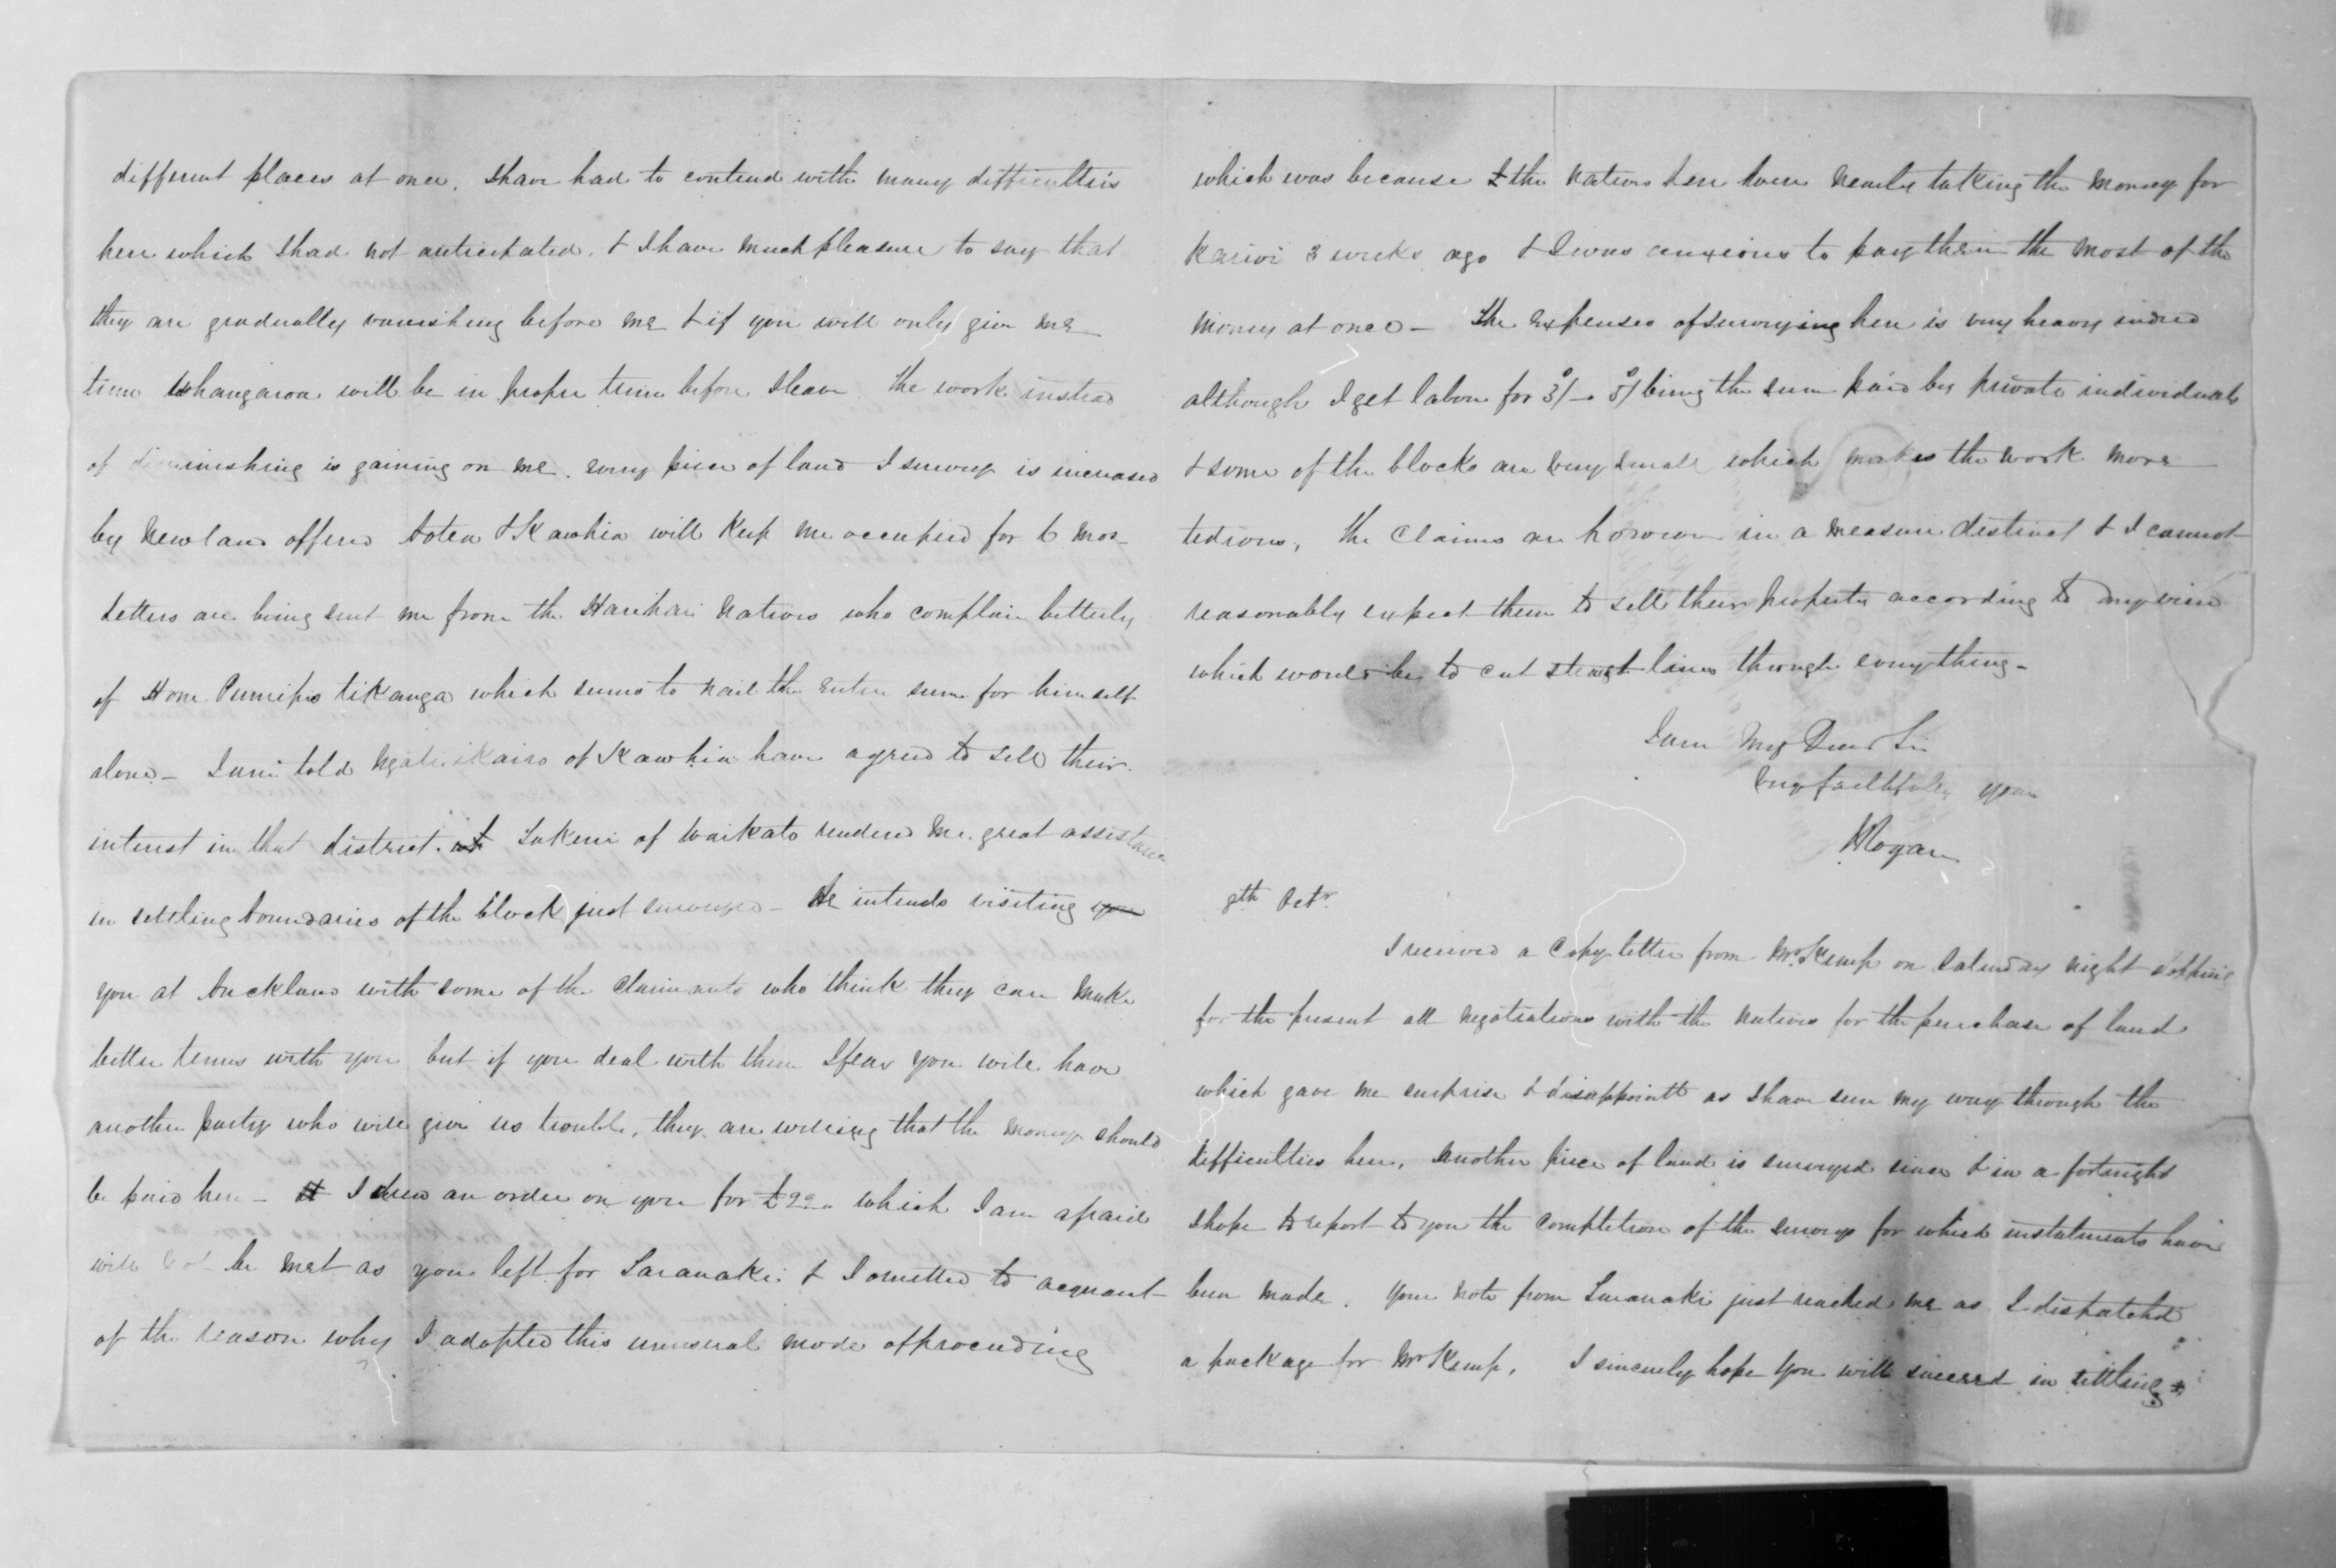 different places at once. I have had to contend with many difficulties
here which I had not anticipated. & I have much pleasure to say that
they are gradually vanishing before me & if you will only give me
time Whangaroa will be in proper trim before I leave the work instead
of diminishing is gaining on me. every piece of land I survey is increased
by new land offered Aotea & Kawhia will keep me occupied for 6 mos-
Letters are being sent me from the Harihari Natives who complain bitterly
of Hone tikanga which seems to the entire sum for himself
alone - I am told Ngatihikairo of Kawhia have agreed to sell their
interest in that district. Takerei of Waikato rendered me great assistance
in settling boundaries of the block just surveyed - He intends visiting you
you at Auckland with some of the claimants who think they can make
better terms with you but if you deal with them I fear you will have
another party who will give us trouble, they are willing that the money should
be paid here - I drew an order on you for £220 which I am afraid
will not be met as you left for Taranaki & I omitted to acquaint
of the reason why I adopted this unusual mode of proceeding
which was because the Natives here were nearly taking the money for
Karioi 3 weeks ago & I was anxious to pay them the most of the
money at once - The expenses of surveying here is very heavy indeed
although I get labor for 3/- 5/ being the sum paid by private individuals
& some of the blocks are very small which makes the work more
tedious, the claims are however in a measure distinct & I cannot
reasonably expect them to sell their property according to my view
which would be to cut straight lines through everything -
I am My Dear Sir
Very faithfully yours
J Rogan
9th Octr
I received a Copy letter from Mr Kemp on Saturday night stopping
for the present all negotiations with the natives for the purchase of land
which gave me surprise & disappointt as I have seen my way through the
difficulties here, another piece of land is surveyed since & in a fortnight
I hope to report to you the completion of the surveys for which instalments have
been made. Your note from Taranaki just reached me as I dispatched
a package for Mr Kemp. I sincerely hope you will succeed in settling